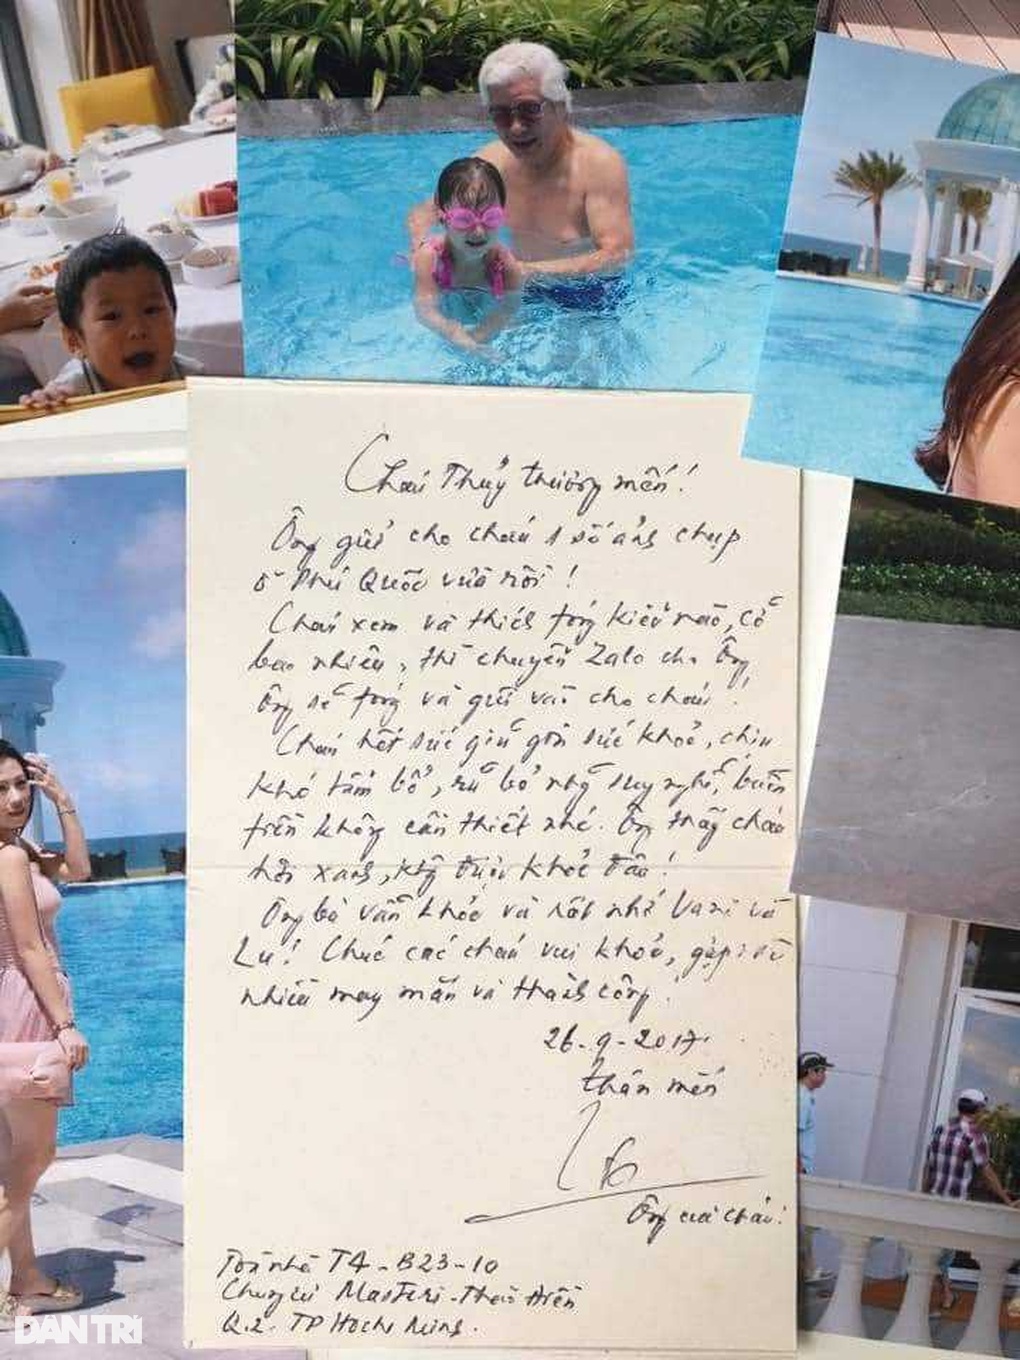 Cháu Thủy thương mến!
Ông gửi cho cháu 1 số ảnh chụp
ở Phú Quốc vừa rồi!
Cháu xem và thích phóng kiểu nào, cỡ
bao nhiêu, thì chuyển Zalo cho Ông,
Ông sẽ phóng và gửi vào cho cháu!
Cháu hết sức giữ gìn sức khỏe, chịu
khó tẩm bổ, rũ bỏ những suy nghĩ, buồn
phiền không cần thiết nhé. Ông thấy cháu
hơi xanh, không được khỏe đâu!
Ông bà vẫn khỏe và rất nhớ Vani và
Lu! Chúc các cháu vui khỏe, gặp
nhiều may mắn và thành công!
26-9-2017
Thân mến
Ông của cháu!
Tòa nhà T4-B23-10
Chung cư Masteri-Thảo Điền
Q.2. TP Hồ Chí Minh.
DÂN TRÍ